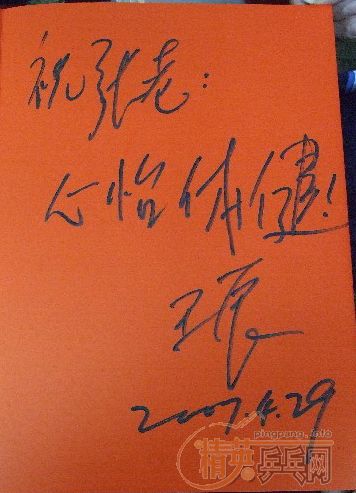 祝张老:
心怡体健!
王晨
2007.4.29
pingpang.info
精英乒乓网